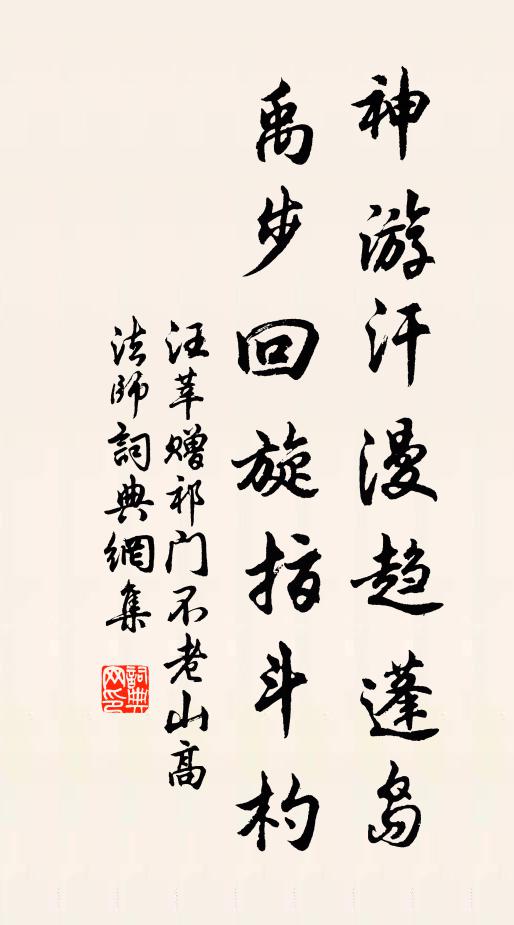 神游汗漫趋蓬岛
禹步回旋指斗杓
汪莘赠祁门不老山高
法師詞典網集
詞典
网印